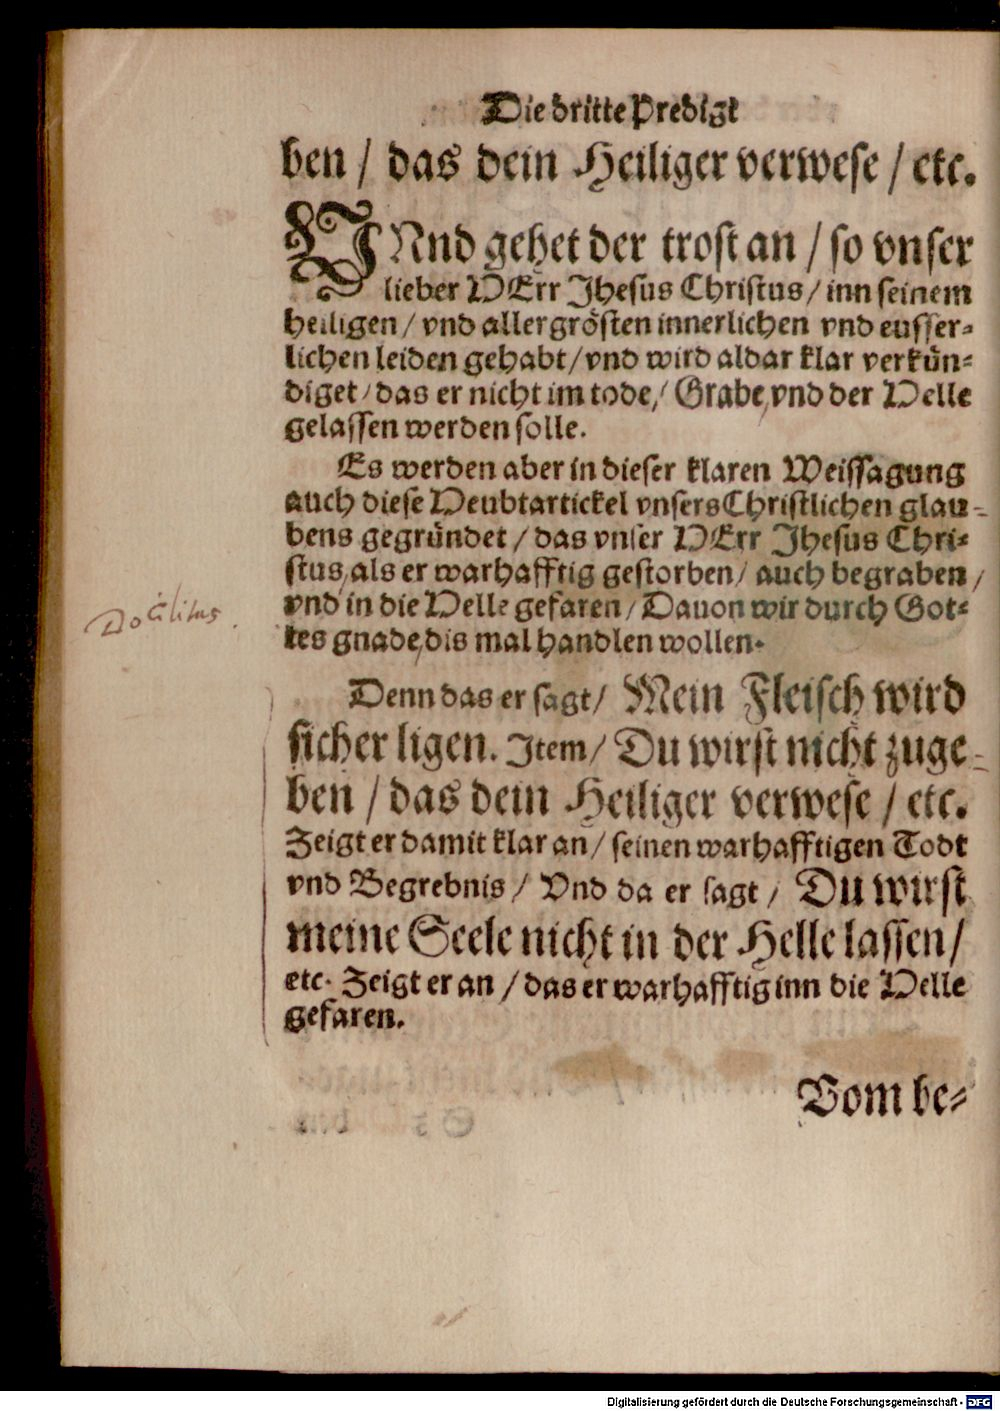 Die dritte Predigt
ben / das dein Heiliger verwese / etc.
VNnd gehet der trost an / so vnser
lieber HErr Jhesus Christus / inn seinem
heiligen / vnd allergrösten innerlichen vnd eusser-
lichen leiden gehabt / vnd wird aldar klar verkün-
diget / das er nicht im tode / Grabe / vnd der Helle
gelassen werden solle.
Es werden aber in dieser klaren Weissagung
auch diese Heubtartickel vnsers Christlichen glau-
bens gegründet / das vnser HErr Jhesus Chri-
stus / als er warhafftig gestorben / auch begraben /
Docilitas.
vnd in die Helle gefaren / Dauon wir durch Got-
tes gnade / dis mal handlen wollen.
Denn das er sagt / Mein Fleisch wird
sicher ligen. Item / Du wirst nicht zuge-
ben / das dein Heiliger verwese / etc.
Zeigt er damit klar an / seinen warhafftigen Todt
vnd Begrebnis / Vnd da er sagt / Du wirst
meine Seele nicht in der Helle lassen /
etc. Zeigt er an / das er warhafftig inn die Helle
gefaren.
Vom be-
Digitalisierung gefördert durch die Deutsche Forschungsgemeinschaft - DFG